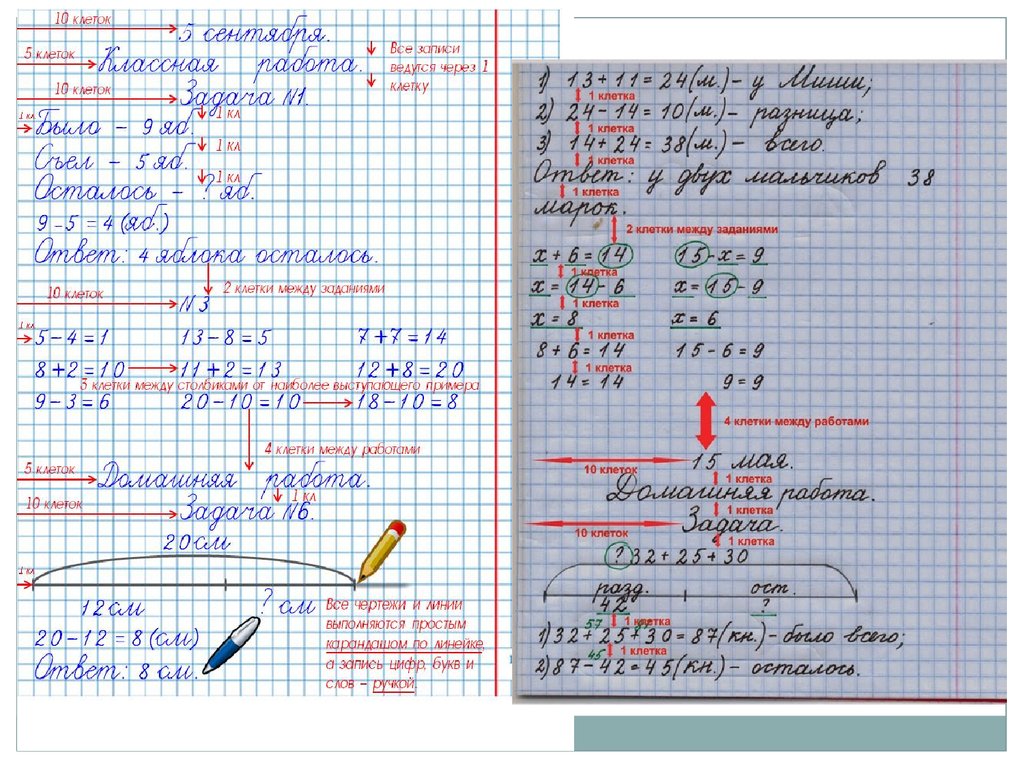 10 клеток
5 сентября.
5 клеток
Классная работа.
Все записи
ведутся через 1
клетку
10 клеток
Задача N1.
1 кл
1 кл
Было – 9 яб.
1 кл
Съел – 5 яб.
1 кл
Осталось – ? яб.
9 – 5 = 4 (яб.)
Ответ: 4 яблока осталось.
10 клеток
2 клетки между заданиями
N 3
1 кл
5 – 4 = 1 13 – 8 = 5 7 + 7 = 14
8 + 2 = 10 11 + 2 = 13 12 + 8 = 20
3 клетки между столбиками от наиболее выступающего примера
9 – 3 = 6 20 – 10 = 10 18 – 10 = 8
4 клетки между работами
5 клеток
Домашняя работа.
1 кл
10 клеток
Задача N6.
20 см
1 кл
12 см ? см
20 – 12 = 8 (см)
Ответ: 8 см.
Все чертежи и линии
выполняются простым
карандашом по линейке,
а запись цифр, букв и
слов – ручкой.
1) 13 + 11 = 24 (м.) – у Миши;
1 клетка
2) 24 – 14 = 10 (м.) – разница;
1 клетка
3) 14 + 24 = 38 (м.) – всего.
1 клетка
Ответ: у двух мальчиков 38
1 клетка
марок.
2 клетки между заданиями
х + 6 = 14 15 – х = 9
1 клетка
х = 14 – 6 х = 15 – 9
1 клетка
х = 8 х = 6
1 клетка
8 + 6 = 14 15 – 6 = 9
1 клетка
14 = 14 9 = 9
4 клетки между работами
10 клеток
15 мая.
1 клетка
Домашняя работа.
1 клетка
Задача.
10 клеток
1 клетка
? 32 + 25 + 30
разд. ост.
42 ?
57 1 клетка
1) 32 + 25 + 30 = 87 (кн.) – было всего;
45 1 клетка
2) 87 – 42 = 45 (кн.) – осталось.